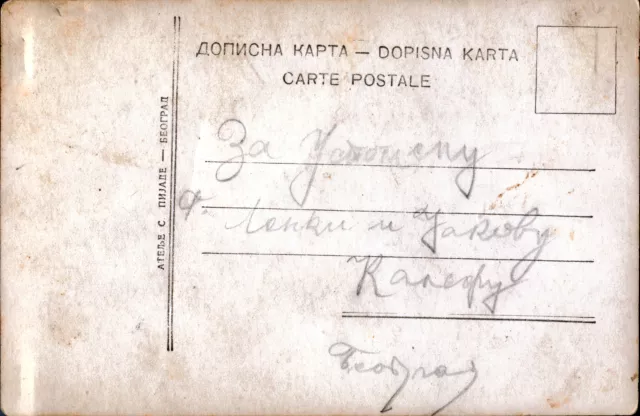 ДОПИСНА КАРТА — DOPISNA KARTA
CARTE POSTALE
АТЕЉЕ С. ПИЈАДЕ — БЕОГРАД
За Успомену
Ф. Ленки и Јакову
Калефу
Београд